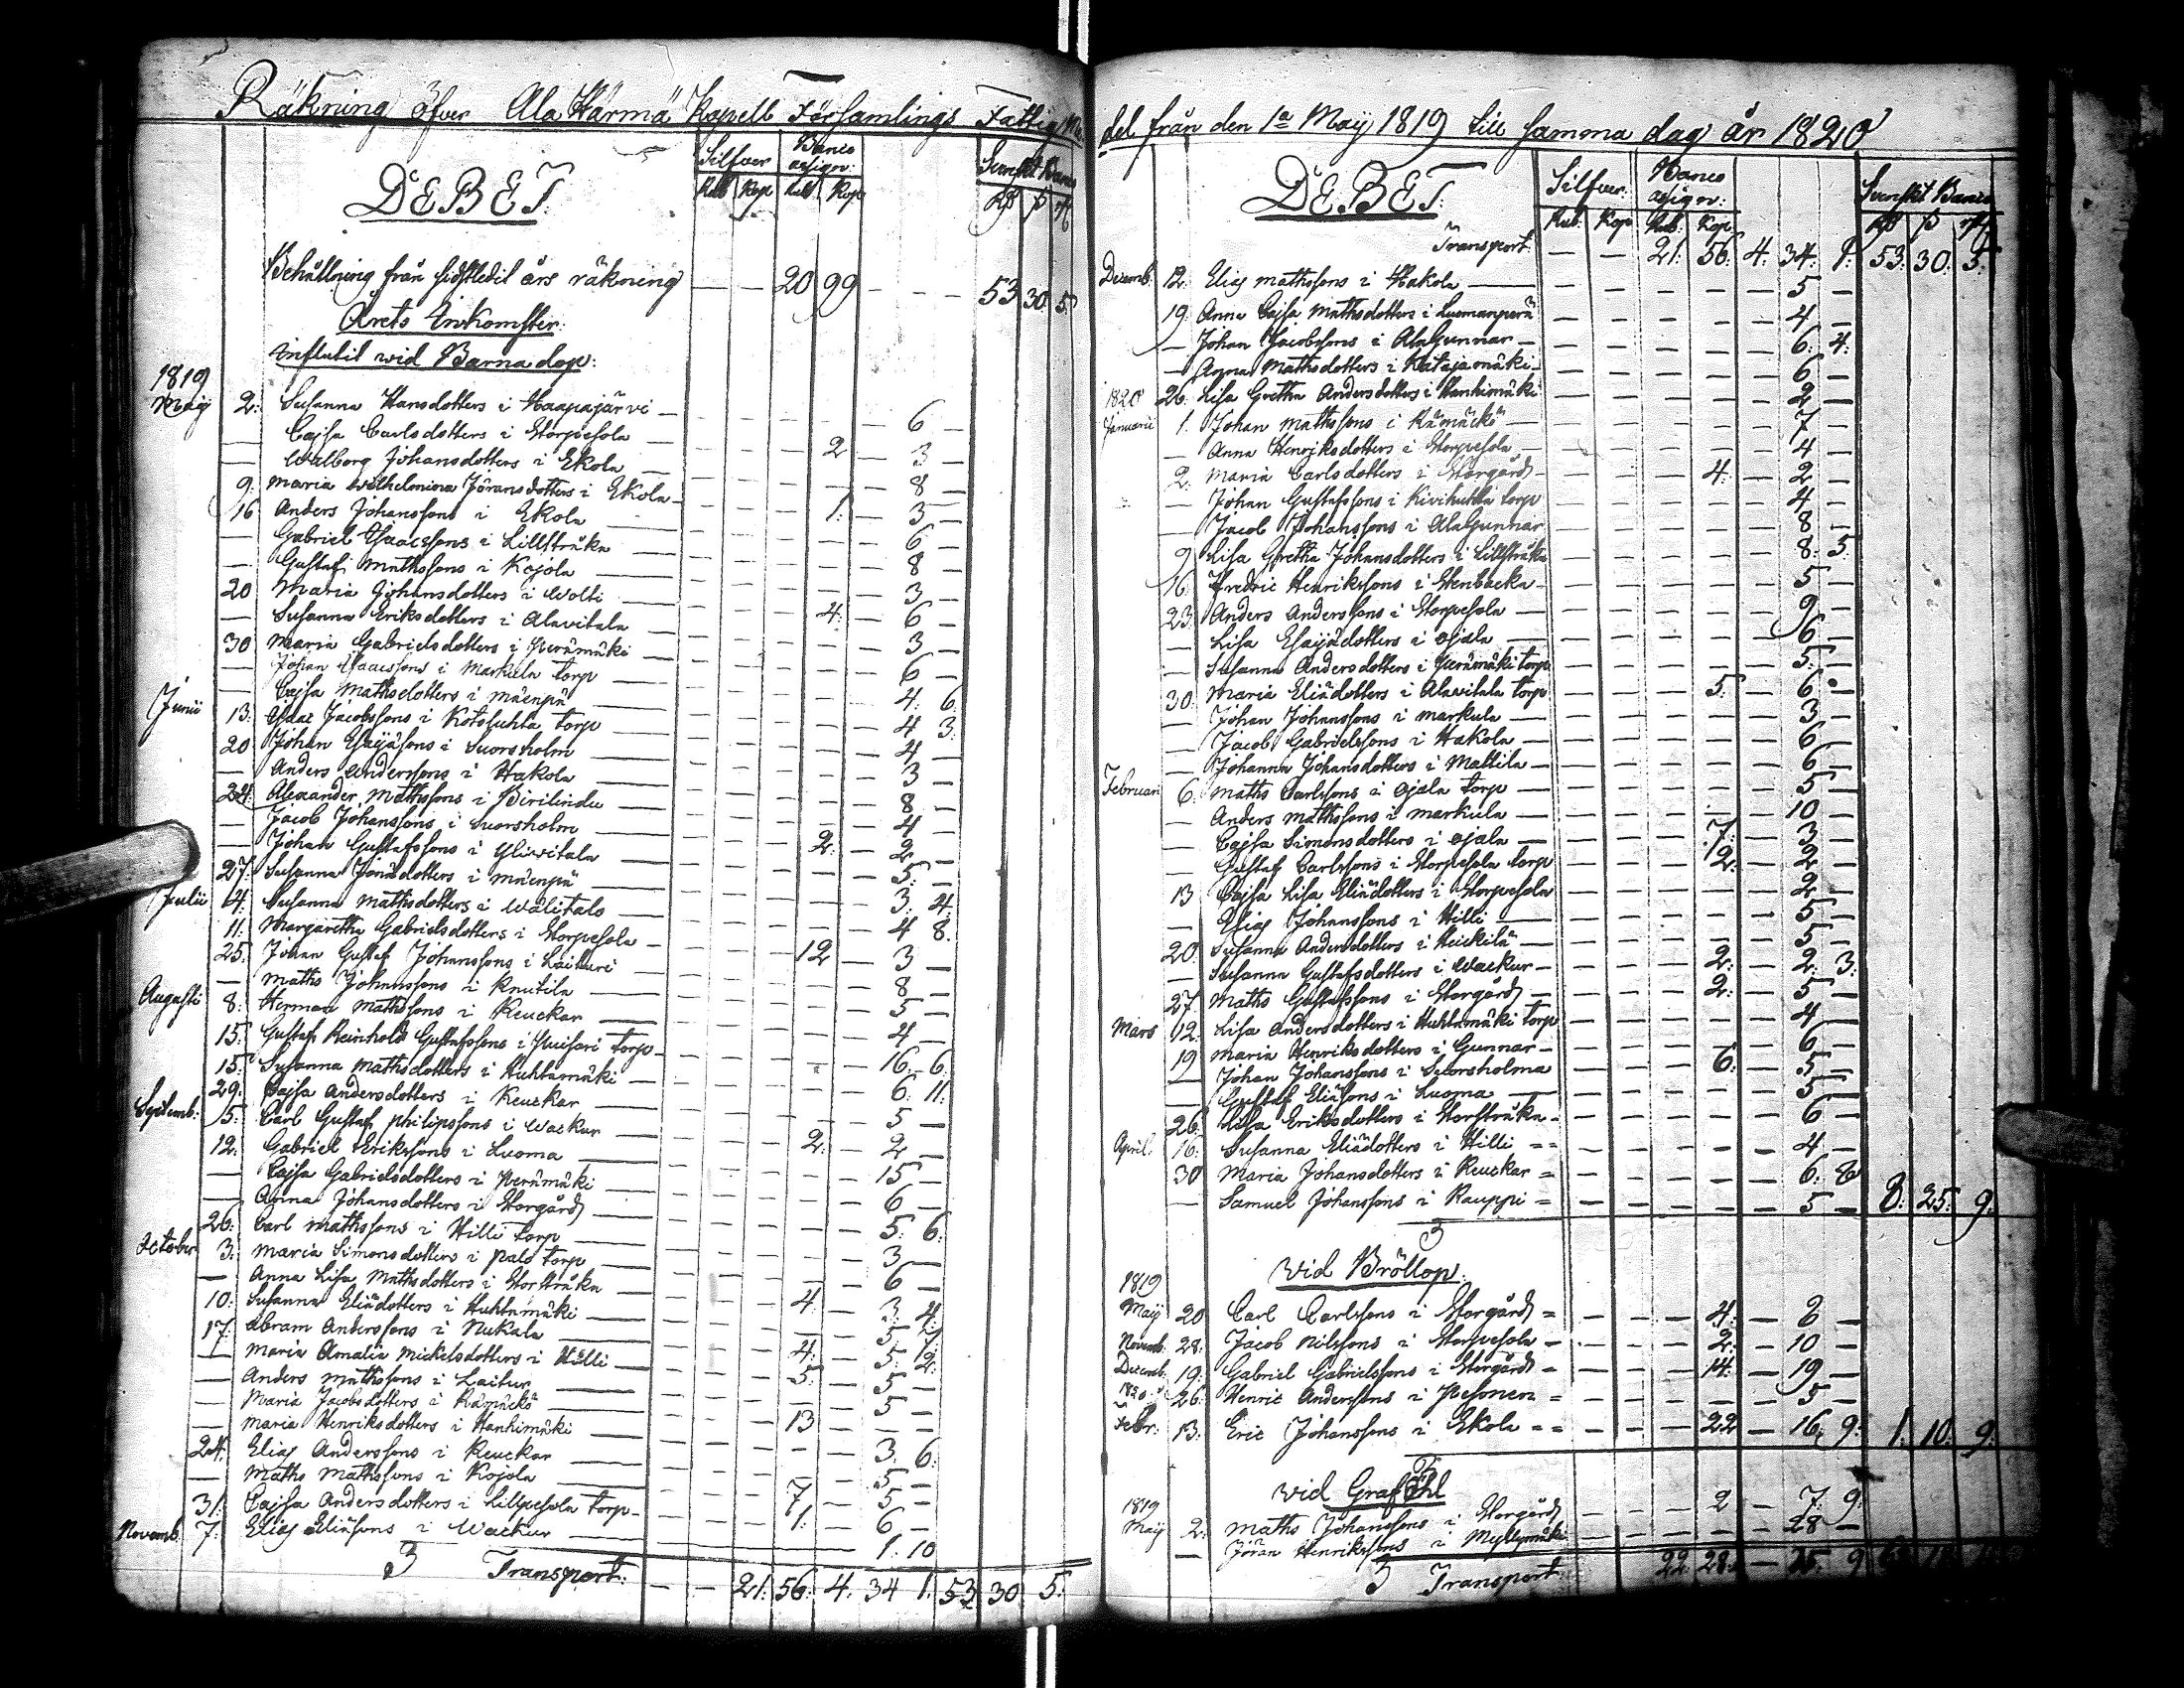 Räkning öfver Ala Härmä Kapell Församlings Fattig
DEBET.
Silfver Banco assign: Svenskt Banco
Rub Kop Rub Kop
Behållning från sidstledit års räkning — — 20 99 — — — 53 30 5.
Årets Inkomster:
Influtit wid Barnadop:
1819
Maij 2: Susanna Hansdotters i Haapajärvi — — — — — — 6 —
— Cajsa Carlsdotters i Storpesola — — — — 2 — 3 —
— Walborg Johansdotters i Ekola — — — — — — 8 —
9: Maria Wilhelmina Jöransdotters i Ekola — — — — 1: — 3 —
16 Anders Johanssons i Ekola — — — — — — 6 —
— Gabriel Isaacssons i Lillstråka — — — — — — 8 —
— Gustaf Mathssons i Kojola — — — — — — 3 —
20 Maria Johansdotters i Wolti — — — — 4: — 6 —
— Susanna Eriksdotters i Alavitala — — — — — — 3 —
30 Maria Gabrielsdotters i Perämäki — — — — — — 6 —
— Johan Isaacssons i Markula torp — — — — — — 4: 6:
— Cajsa Mathsdotters i Mäenpä — — — — — — 4 3:
Junii 13: Isaac Jacobssons i Kotosuhta torp — — — — — — 4 —
20 Johan Esaijäsons i Suorsholm — — — — — — 3 —
— Anders Anderssons i Hakola — — — — — — 8 —
24: Alexander Mathssons i Birilindu — — — — — — 4 —
— Jacob Johanssons i Suorsholm — — — — 2: — 2 —
— Johan Gustafssons i Yliwitala — — — — — — 5: —
27: Susanna Jonädotters i Mäenpä — — — — — — 3: 4:
Julii 4: Susanna Mathsdotters i Wälitalo — — — — — — 4 8:
11: Margaretha Gabrielsdotters i Storpesola — — — — 12 — 3 —
25: Johan Gustaf Johanssons i Laituri — — — — — — 8 —
— Maths Johanssons i Knutila — — — — — — 5 —
Augusti 8: Herman Mathssons i Keuckar — — — — — — 4 —
15: Gustaf Reinhold Gustafssons i Huisari torp — — — — — — 16. 6:
15: Susanna Mathsdotters i Huhtamäki — — — — — — 6: 11:
29: Cajsa Andersdotters i Keuckar — — — — — — 5 —
Septemb: 5: Carl Gustaf Philipssons i Wackur — — — — 2: — 2 —
12: Gabriel Erikssons i Luoma — — — — — — 15 —
— Cajsa Gabrielsdotters i Perämäki — — — — — — 6 —
— Anna Johansdotters i Storgård — — — — — — 5: 6:
26: Carl Mathssons i Hilli torp — — — — — — 3 —
October 3: Maria Simonsdotters i Palo torp — — — — — — 6 —
— Anna Lisa Mathsdotters i Storstråka — — — — 4: — 3: 4:
10: Susanna Eliädotters i Huhtamäki — — — — — — 5: 7:
17: Abram Anderssons i Nukala — — — — 4: — 5: 2:
— Maria Amalia Mickelsdotters i Hilli — — — — 5: — 5 —
— Anders Mathssons i Laitur — — — — — — 5 —
— Maria Jacobsdotters i Rämäckö — — — — 13 — — —
— Maria Henriksdotters i Hanhimäki — — — — — — 3: 6:
24: Elias Anderssons i Keuckar — — — — — — 5 —
— Maths Mathssons i Kojola — — — — 7 — 5 —
31: Cajsa Andersdotters i Lillpesola torp — — — — 1: — 6 —
Novemb: 7: Elias Eliäsons i Wackur — 1: 10
Transport: — — 21: 56: 4: 34 1: 53 30 5:
del från den 1a Maij 1819 till samma dag år 1820
DEBET:
Silfver: Banco assign: Svenskt Banco
Rub: Kop Rub: Kop
Transport: — — 21: 56: 4: 34: 1: 53: 30: 5:
Decemb: 12: Elias Mathssons i Hakola — — — — — — 5 —
19: Anna Cajsa Mathsdotters i Luomanperä — — — — — — 4 —
— Johan Jacobssons i AlaGunnar — — — — — — 6: 4:
— Anna Mathsdotters i Katajamäki — — — — — — 6 —
1820 26: Lisa Gretha Andersdotters i Hanhimäki — — — — — — 2 —
Januarii 1: Johan Mathssons i Rämäckö — — — — — — 7 —
— Anna Henriksdotters i Storpesola — — — — — — 4 —
2: Maria Carlsdotters i Storgård — — — — 4: — 2 —
— Johan Gustafssons i Kivihuhta torp — — — — — — 4 —
— Jacob Johanssons i AlaGunnar — — — — — — 8 —
9 Lisa Gretha Johansdotters i Lillstråka — — — — — — 8: 5:
16: Fredric Henrikssons i Stenbacka — — — — — — 5 —
23: Anders Anderssons i Storpesola — — — — — — 9 —
— Lisa Esaijädotters i Ojala — — — — — — 6 —
— Susanna Andersdotters i Perämäki torp — — — — — — 5: —
30: Maria Eliädotters i Alavitala torp — — — — 5: — 6: —
— Johan Johanssons i Markula — — — — — — 3 —
— Jacob Gabrielssons i Hakola — — — — — — 6 —
— Johanna Johansdotters i Mattila — — — — — — 6 —
Februari 6: Maths Carlssons i Ojala torp — — — — — — 5 —
— Anders Mathssons i Markula — — — — — — 10 —
— Cajsa Simonsdotters i Ojala — — — — 7: — 3 —
Gustaf Carlssons i Storpesola torp — — — — 2: — 2 —
13 Cajsa Lisa Eliädotters i Storpesola — — — — — — 2 —
— Elias Johanssons i Hilli — — — — — — 5 —
20: Susanna Andersdotters i Heickilä — — — — — — 5 —
— Susanna Gustafsdotters i Wackur — — — — 2: — 2: 3:
27: Maths Gustafssons i Storgård — — — — 2: — 5 —
Mars 12: Lisa Andersdotters i Huhtamäki torp — — — — — — 4 —
19 Maria Henriksdotters i Gunnar — — — — — — 6 —
— Johan Johanssons i Suorsholma — — — — 6: — 5 —
— Gustaf Eliäsons i Luoma — — — — — — 5 —
26: Lisa Eriksdotters i Storstråka — — — — — — 6 —
April: 16: Susanna Eliädotters i Hilli — — — — — — 4 —
30 Maria Johansdotters i Keuckar — — — — — — 6: 8
— Samuel Johanssons i Kauppi — — — — — — 5 — 8: 25: 9:
wid Bröllop:
1819
Maij 20 Carl Carlssons i Storgård — — — 4: — 8 —
Novemb: 28: Jacob Nilssons i Storpesola — — — 2: — 10 —
Decemb: 19: Gabriel Gabrielssons i Storgård — — — 14: — 19 —
1820 26: Henric Anderssons i Pesonen — — — — — 5 —
Febr: 13: Eric Johanssons i Ekola — — — 22 — 16: 9: 1: 10: 9:
wid Graföhl
1819
Maij 2: Maths Johanssons i Storgård — — — 2 — 7: 9:
— Jöran Henrikssons i Myllymäki — — — — — 18 —
Transport: 22: 28: — 25: 9